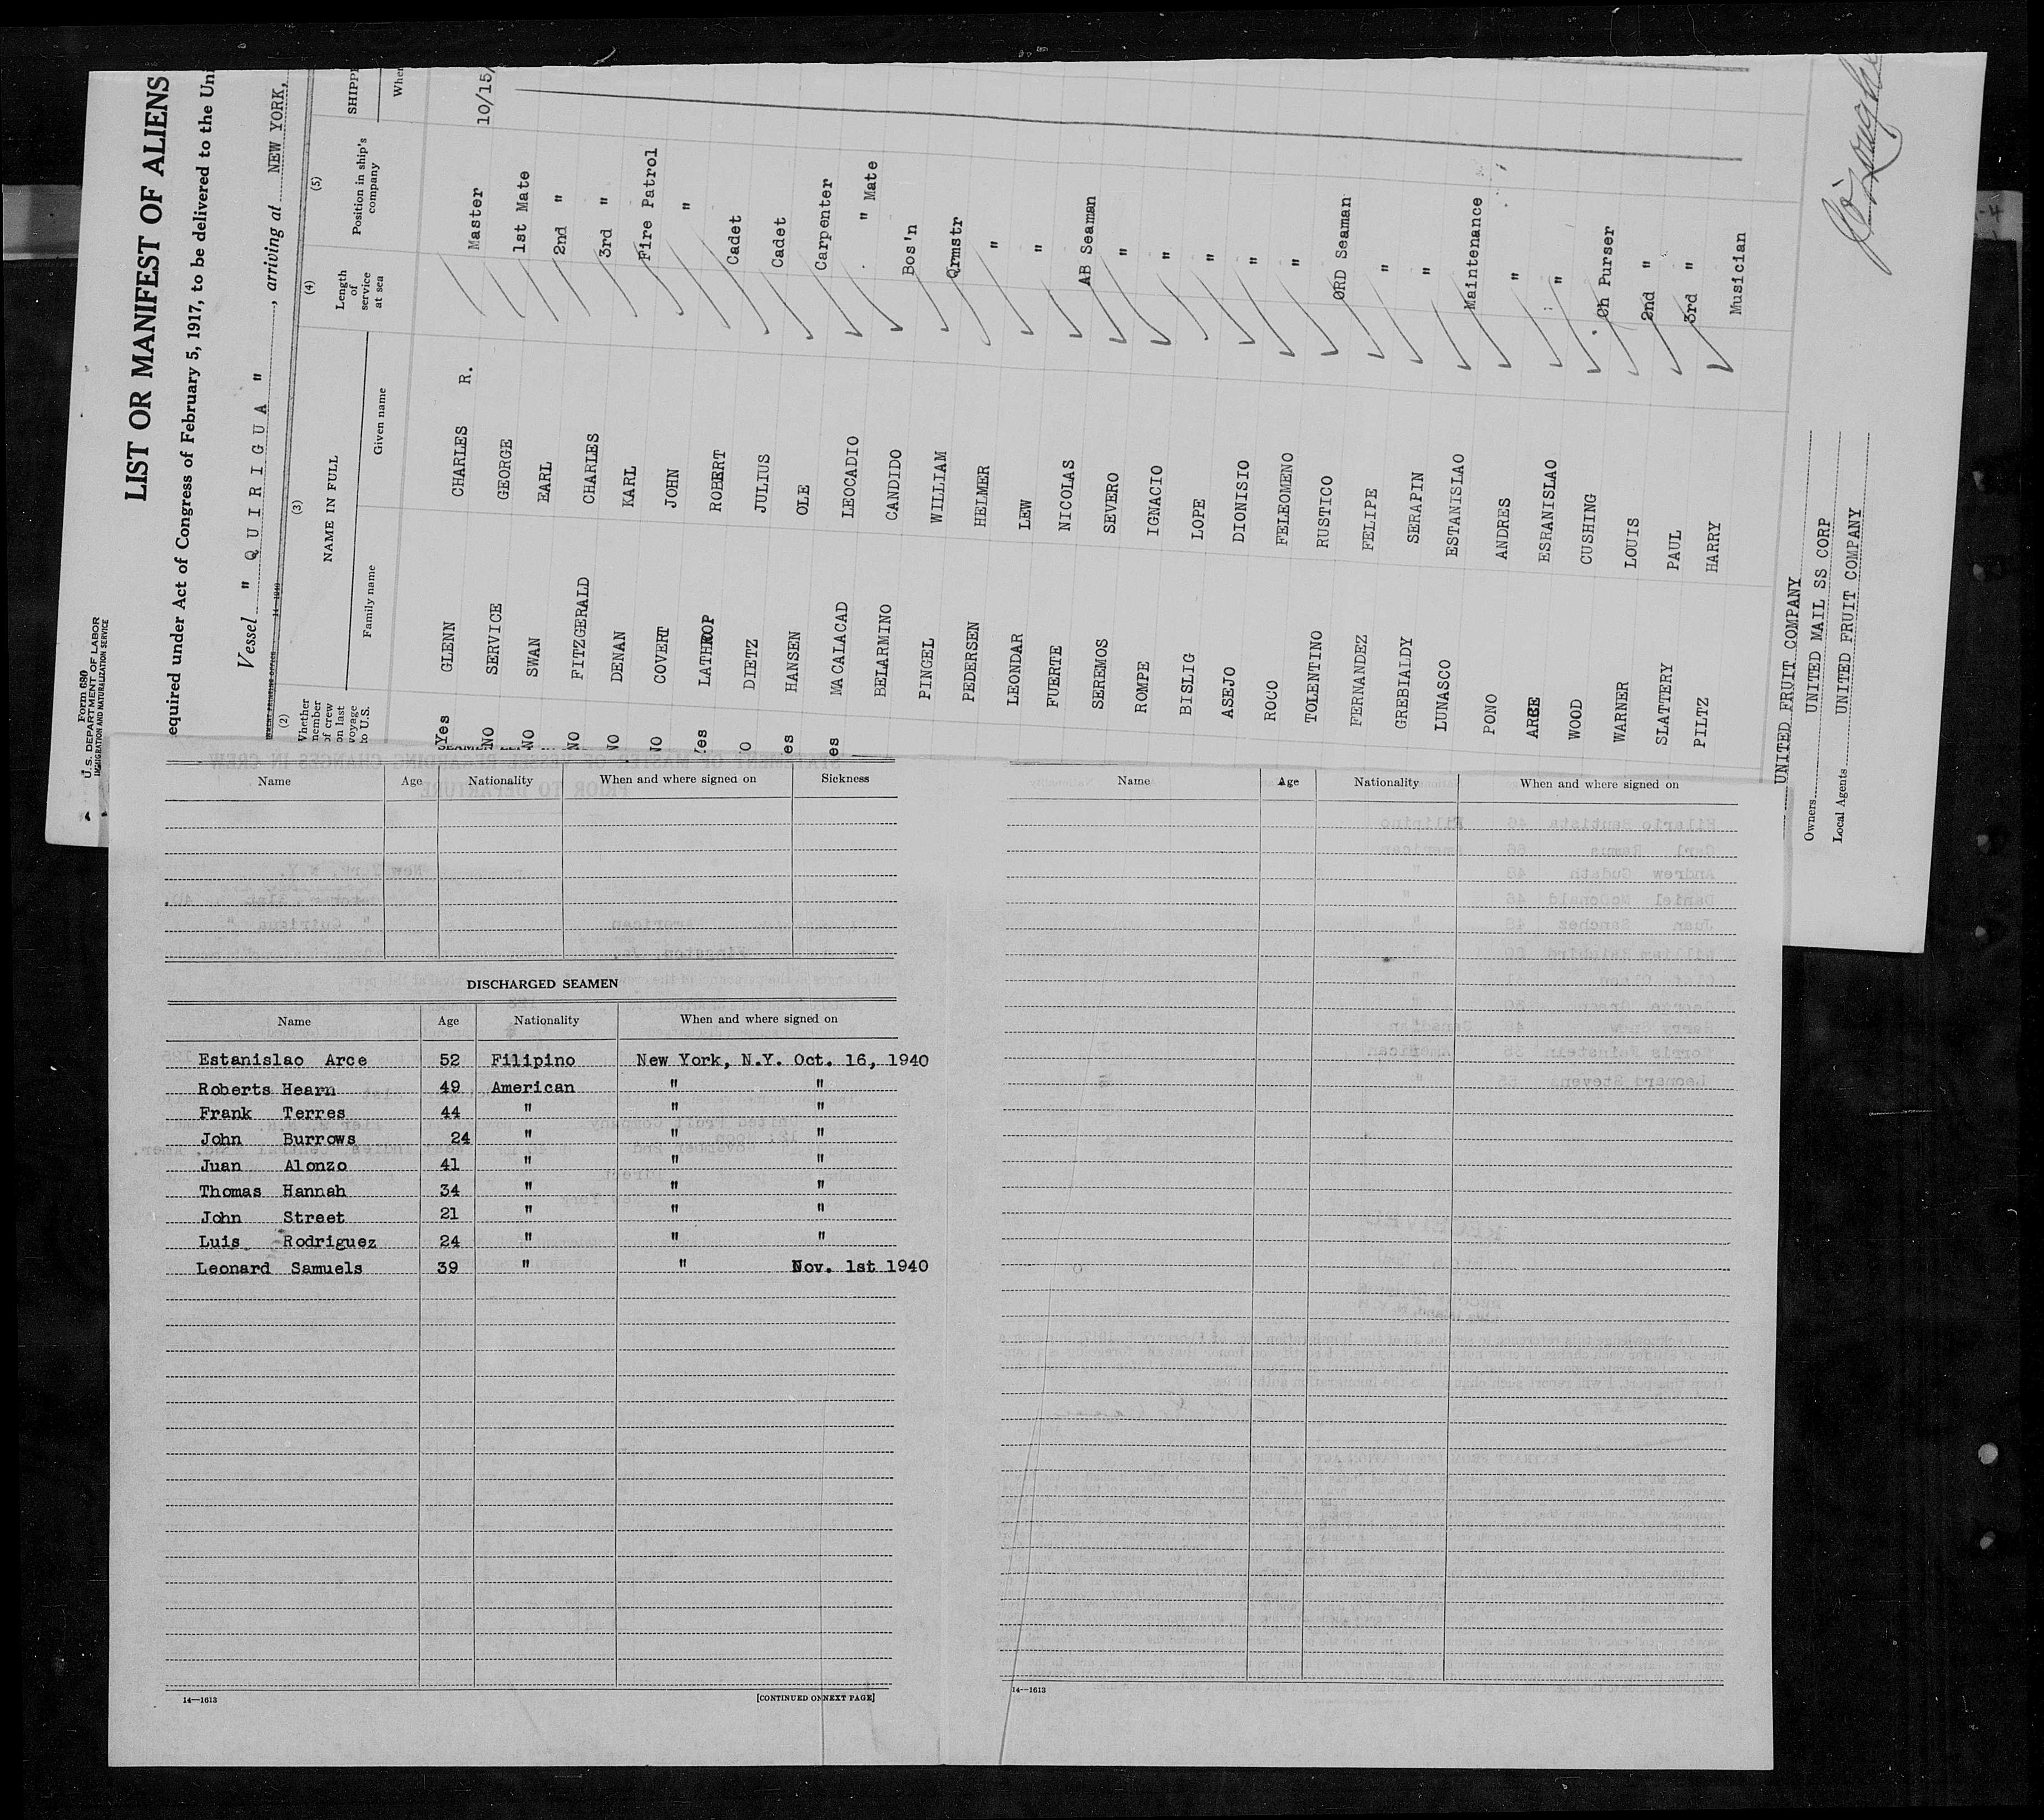 Form 680
U.S. DEPARTMENT OF LABOR
IMMIGRATION AND NATURALIZATION SERVICE
LIST OR MANIFEST OF ALIENS
equired under Act of Congress of February 5, 1917, to be delivered to the Uni
Vessel " QUIRIGUA " , arriving at NEW YORK,
(2) (3) (4) (5)
Whether member of crew on last voyage to U.S.
NAME IN FULL
Family name Given name
Length of service at sea
Position in ship's company
SHIPP
Whe
Yes GLENN CHARLES R. Master 10/15/
NO SERVICE GEORGE 1st Mate
NO SWAN EARL 2nd "
NO FITZGERALD CHARLES 3rd "
NO DENAN KARL Fire Patrol
NO COVERT JOHN "
Yes LATHROP ROBERT Cadet
O DIETZ JULIUS Cadet
es HANSEN OLE Carpenter
es MACALACAD LEOCADIO " Mate
BELARMINO CANDIDO Bos'n
PINGEL WILLIAM Qrmstr
PEDERSEN HELMER "
LEONDAR LEW "
FUERTE NICOLAS AB Seaman
SEREMOS SEVERO "
ROMPE IGNACIO "
BISLIG LOPE "
ASEJO DIONISIO "
ROCO FELEOMENO "
TOLENTINO RUSTICO ORD Seaman
FERNANDEZ FELIPE "
GREBIALDY SERAPIN "
LUNASCO ESTANISLAO Maintenance
PONO ANDRES "
ARCE ESRANISLAO "
WOOD CUSHING Ch Purser
WARNER LOUIS 2nd "
SLATTERY PAUL 3rd "
PILTZ HARRY Musician
UNITED FRUIT COMPANY
Owners UNITED MAIL SS CORP
Local Agents UNITED FRUIT COMPANY
Name Age Nationality When and where signed on Sickness
DISCHARGED SEAMEN
Name Age Nationality When and where signed on
Estanislao Arce 52 Filipino New York, N.Y. Oct. 16, 1940
Roberts Hearn 49 American " "
Frank Terres 44 " " "
John Burrows 24 " " "
Juan Alonzo 41 " " "
Thomas Hannah 34 " " "
John Street 21 " " "
Luis Rodriguez 24 " " "
Leonard Samuels 39 " " Nov. 1st 1940
14—1613 [CONTINUED ON NEXT PAGE]
Name Age Nationality When and where signed on
14—1613